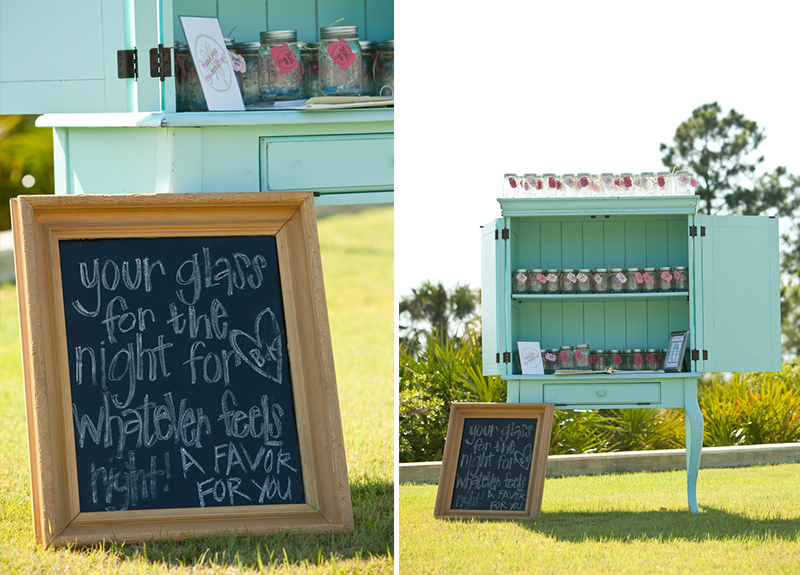 your glass
for the
night for
B+J
whatever feels
right! A FAVOR
FOR YOU
your glass
for the
night for
whatever feels
right! A FAVOR
FOR YOU